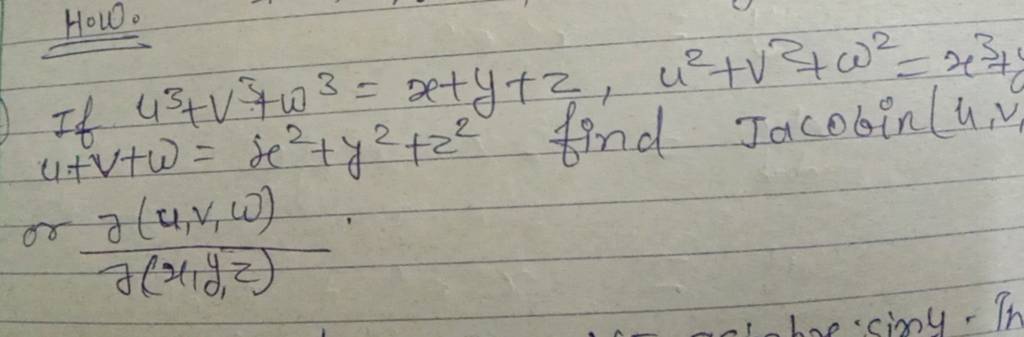 H.W.
If u³+v³+w³ = x+y+z, u²+v²+w² = x³+y
u+v+w = x²+y²+z² find Jacobin(u,v,
or ∂(u,v,w)
∂(x,y,z)